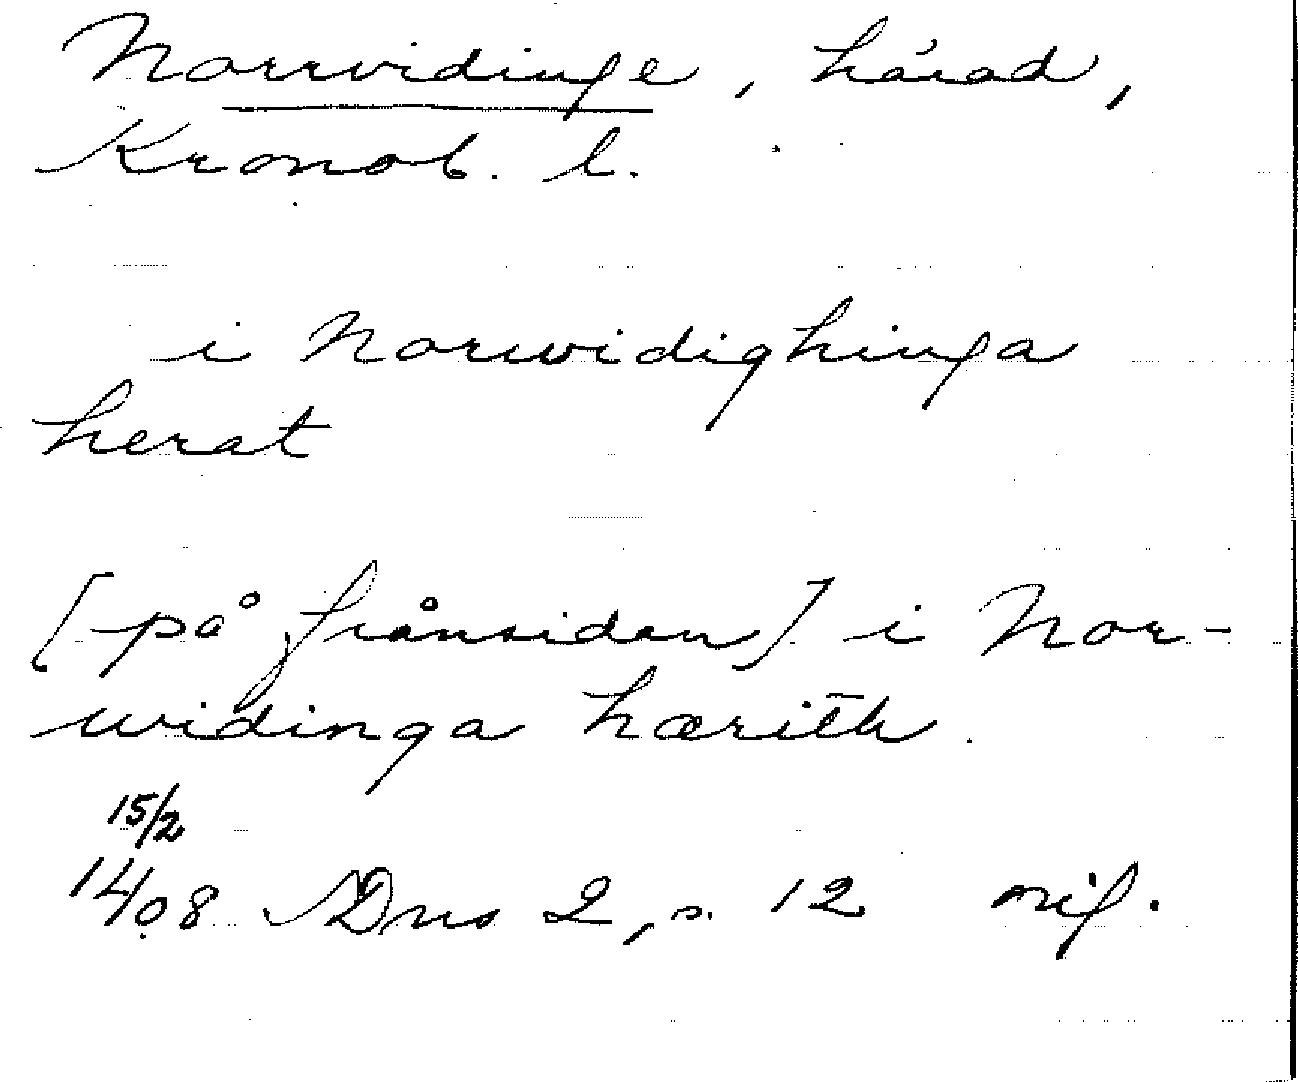 Norrvidinge, härad,
Kronob. l.
i Norwidighinga
herat
[på frånsidan] i Nor-
widinga hærith.
15/2
1408 SDns 2, s. 12 orig.